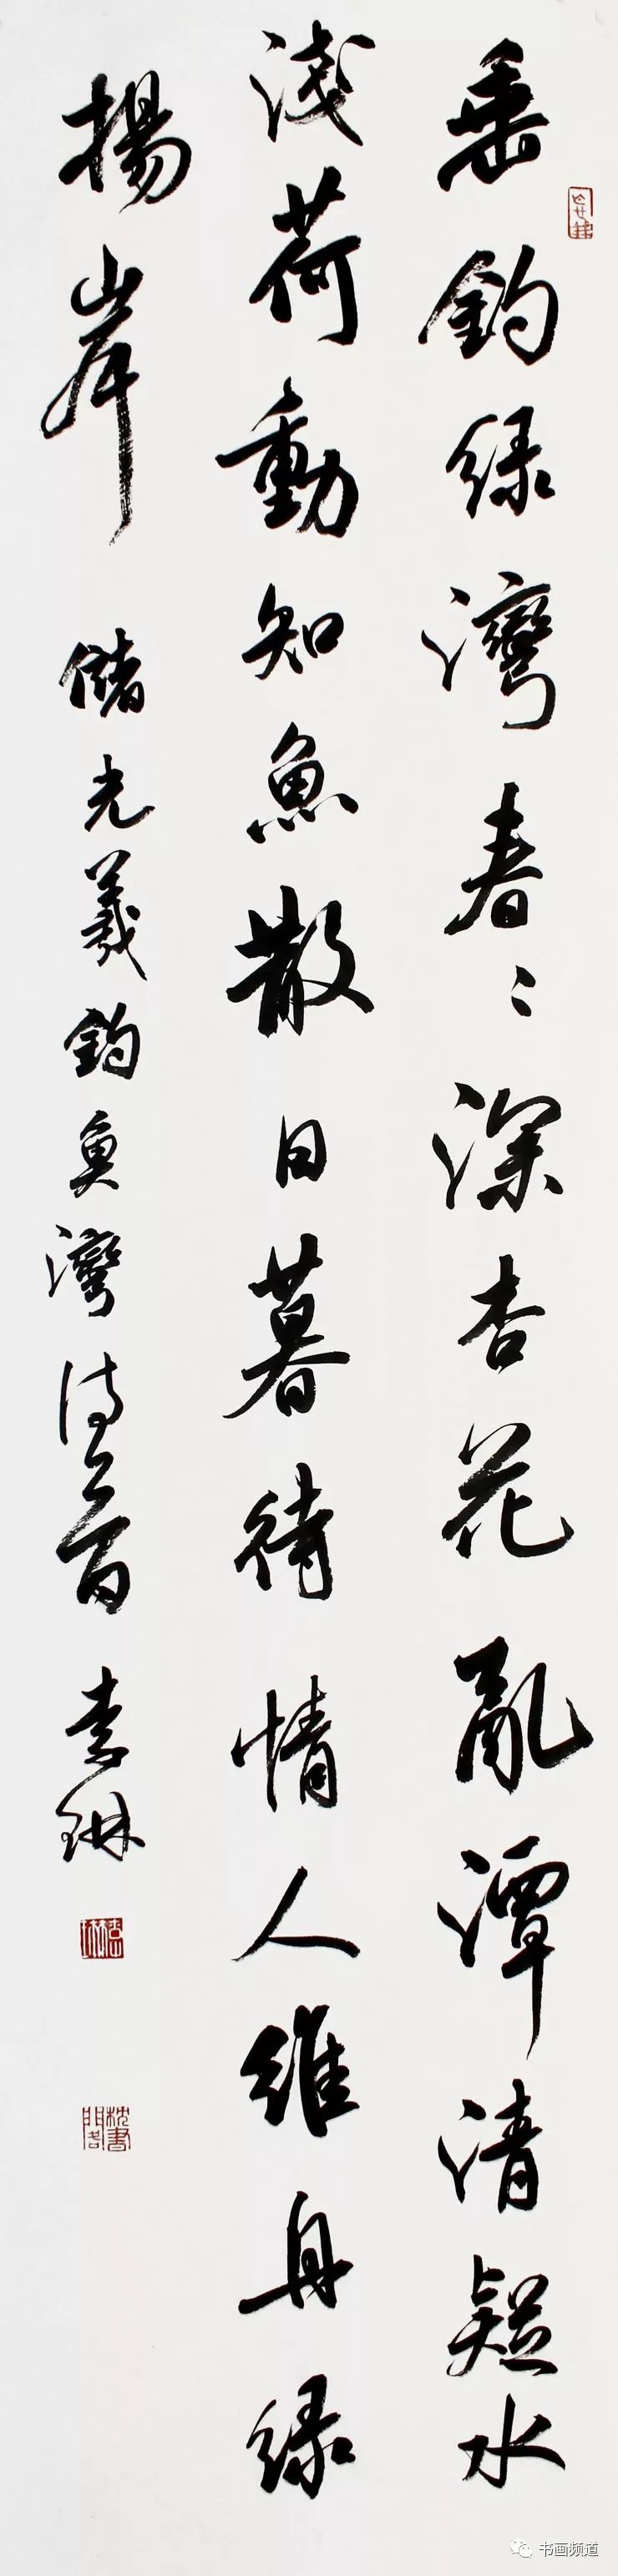 垂釣緑灣春〻深杏花亂潭清疑水
淺荷動知魚散日暮待情人維舟緑
楊岸
儲光羲釣魚灣詩一首 李琳
書画频道